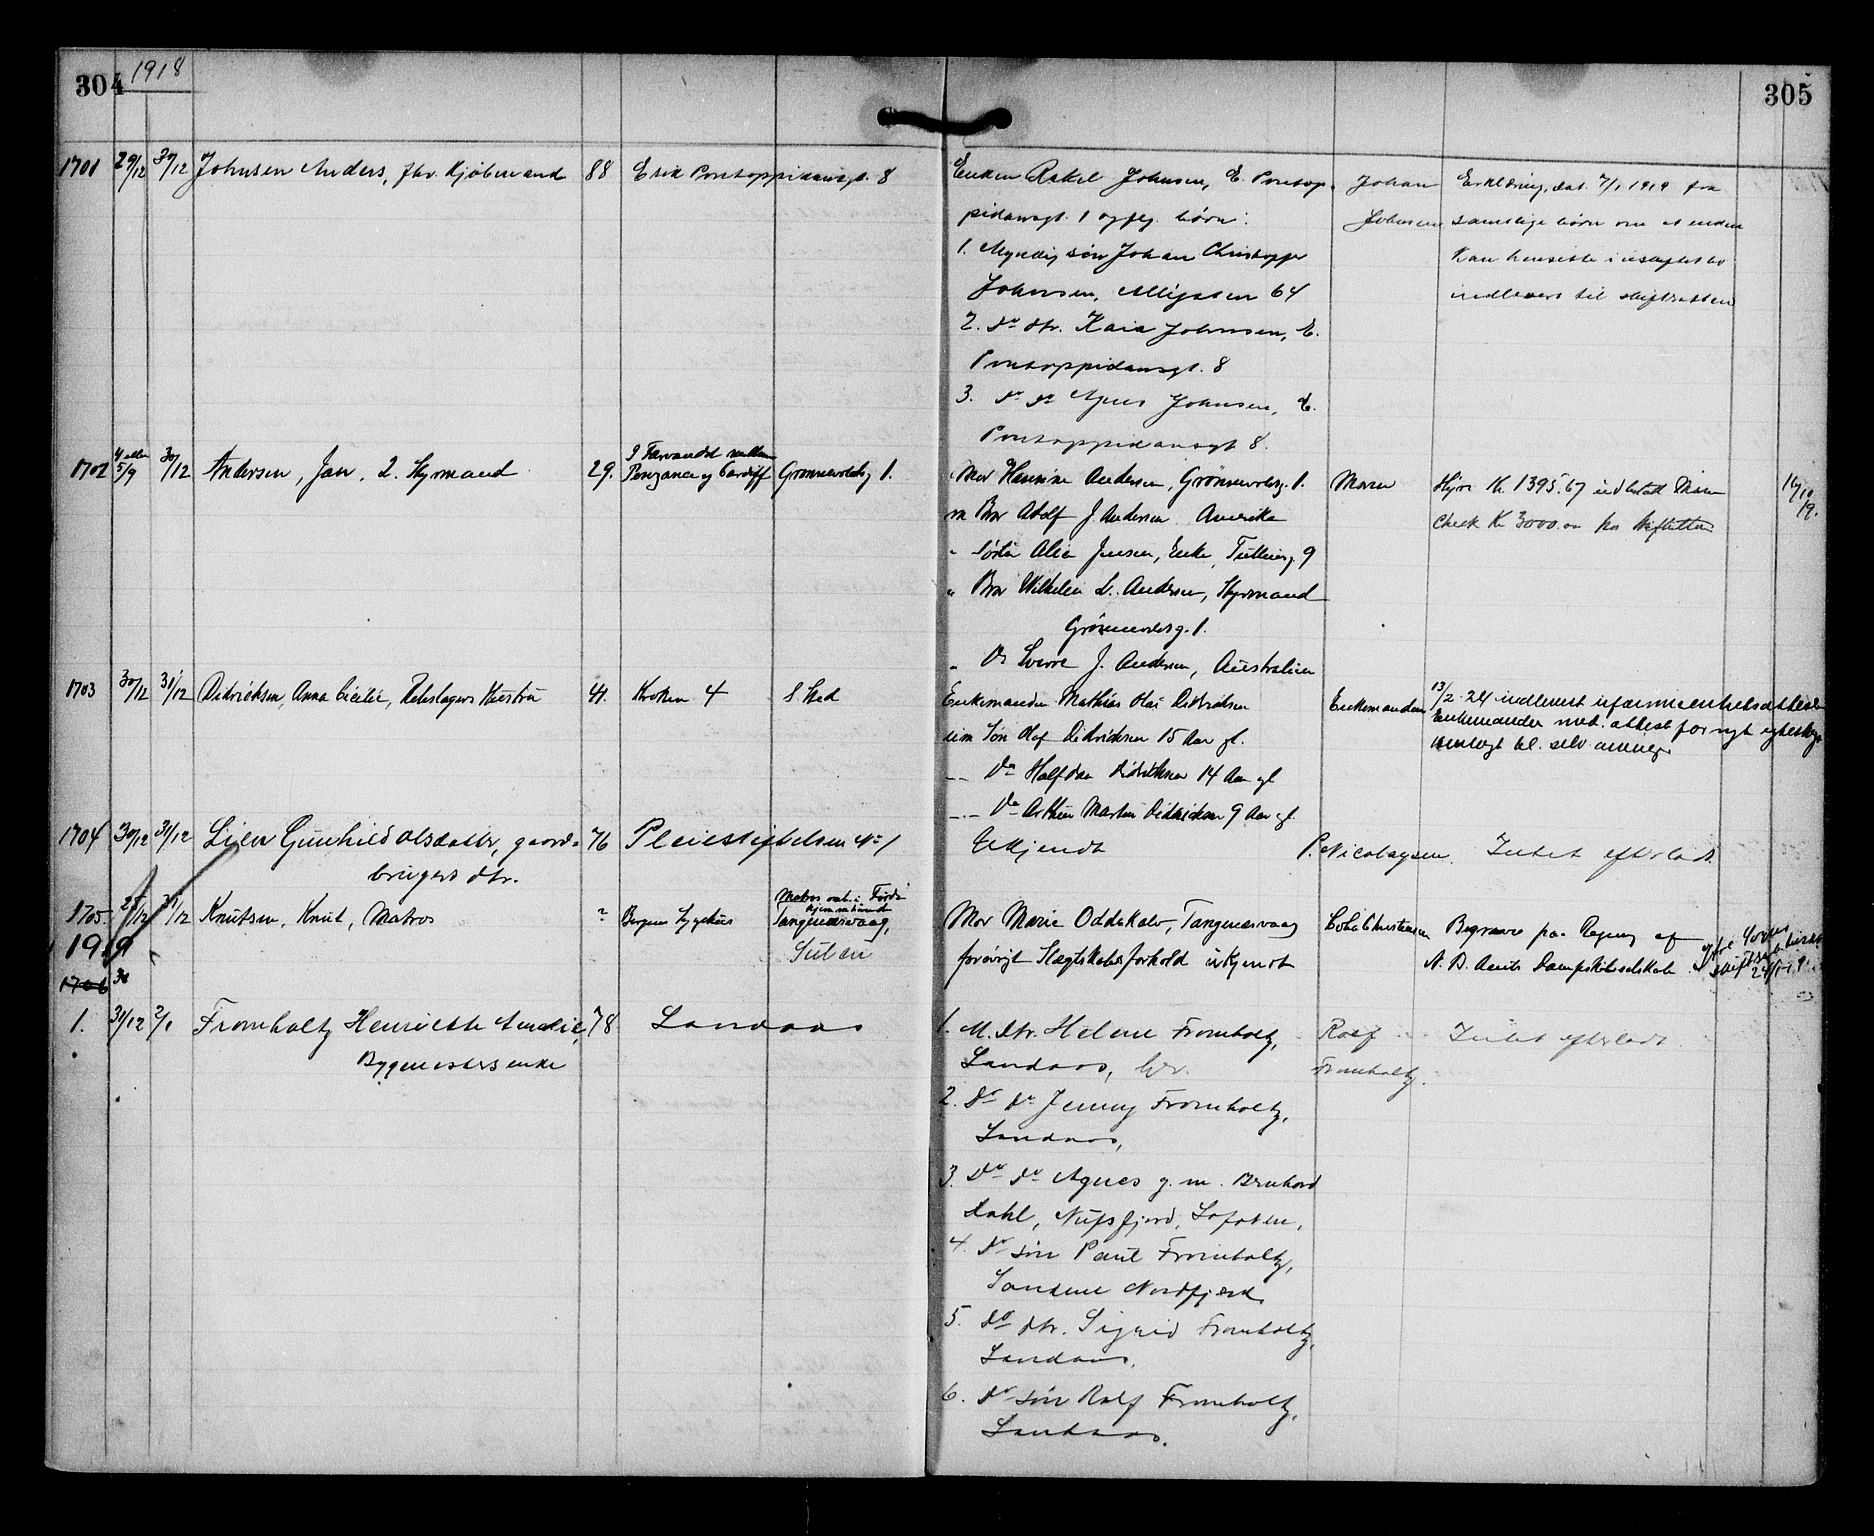 304
1918
305
1701 29/12 30/12 Johnsen Anders, fhv. Kjøbmand 88 Erik Pontoppidansgt. 8
Enken Rakel Johnsen, E. Pontop-
pidansgt. 1 og flg. børn:
1. Myndig søn Johan Christopher
Johnsen, Allégaten 64
2. Do dtr. Kaia Johnsen, E.
Pontoppidansgt. 8
3. Do Do Agnes Johnsen, E.
Pontoppidansgt 8.
Johan
Johnsen
Erklæring, dat. 7/1 1919 fra
samtlige børn om at enken
kan hensidde i uskiftet bo
indlevert til skifteretten
1702 4 eller 5/9 30/12 Andersen, Jan, 2. Styrmand 29. I Farvandet mellem
Penzance og Cardiff Grønnevoldsg 1.
Mor Hansine Andersen, Grønnevoldsg. 1.
m Bror Adolf J. Andersen Amerika
" Søster Alice Jensen, Enke, 9
" Bror Wilhelm L. Andersen, Styrmand
Grønnevoldsg. 1.
" Do Sverre J. Andersen, Australien
Moren
Hyre Kr. 1395.67 udbetalt Moren
Check Kr 3000.00 hos Skifteretten
16/10 19.
1703 30/12 31/12 Didriksen, Anna Cecilie, Rebslagers Hustru 41. Kroken 4 S Sted
Enkemanden Mathias Olai Didriksen
um Søn Olaf Didriksen 15 Aar gl.
-"- Do Halfdan Didriksen 14 Aar gl
-"- Do Arthur Martin Didriksen 9 Aar gl.
Enkemanden
13/2 24 indlevert uformuenhetsattest
Enkemanden med. attest for nyt egteskap
1704 30/12 31/12 Lien Gunhild Olsdatter, gaard-
brugers dtr. 76 Pleiestiftelsen No 1
Ukjendt
P. Nicolaysen.
Intet efterladt.
1705 25/12 31/12 Knutsen, Knut, Matros ? Bergens Sygehus Matros
hjemmehørende
Tangenesvaag,
Sulen
Mor Marie Oddekalv, Tangenesvaag
forøvrigt Slægtskabsforhold ukjendt
Christensen
Begravet paa Regning af
A. B. Dampskibsselskab
1919
1706 30
1. 31/12 2/1 Fromholtz Henriette Amalie,
Bygmesters enke 78 Landaas
1. M. Dtr. Helene Fromholtz,
Landaas, hdr.
2. Do Do Jenny Fromholtz,
Landaas,
3. Do Do Agnes g. m. Bernhard
Dahl, Nufsfjord, Lofoten,
4. Do søn Paul Fromholtz,
Sandene Nordfjord.
5. Do dtr. Sigrid Fromholtz,
Landaas.
6. Do søn Rolf Fromholtz,
Landaas.
Rolf
Fromholtz.
Intet efterladt